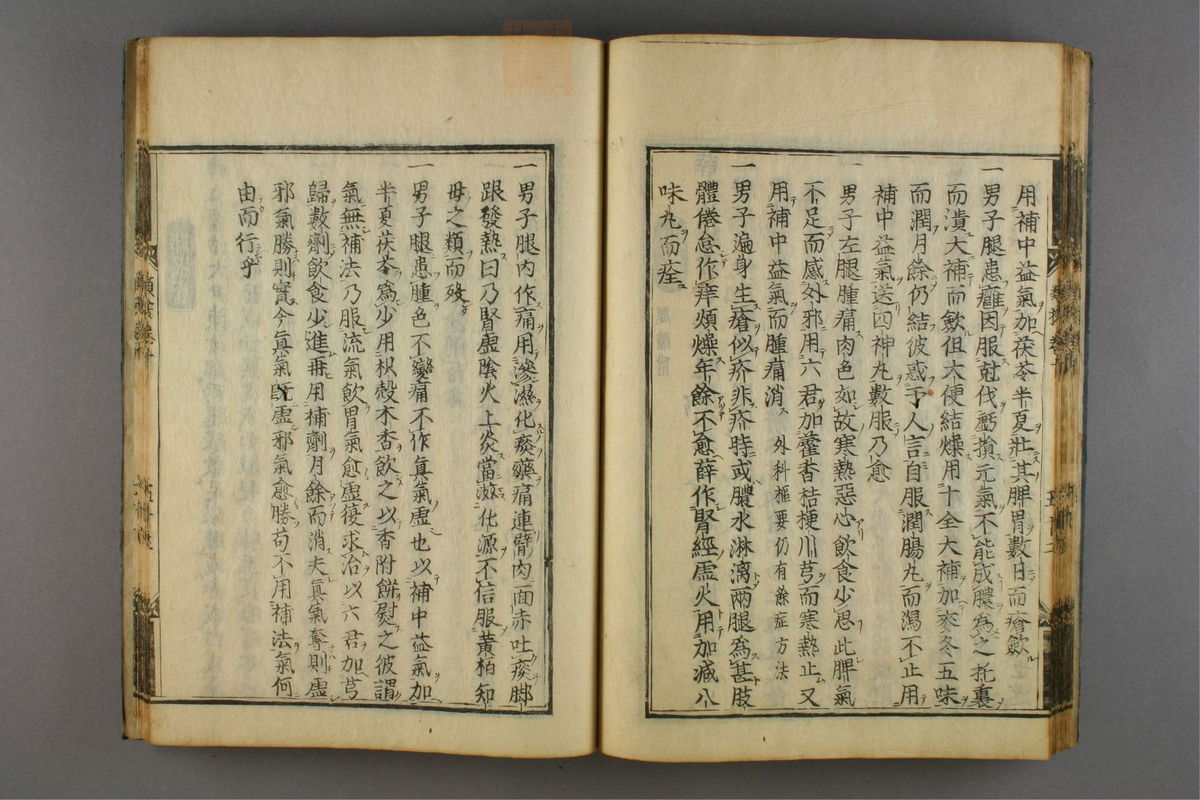 用補中益氣加茯苓半夏壯其脾胃數日而瘡歛
一男子腿患癰因服尅伐虧損元氣不能成膿為之托裏
而潰大補而歛但大便結燥用十全大補加麥冬五味
而潤月餘仍結彼惑于人言自服潤腸丸而瀉不止用
補中益氣送四神丸數服乃愈
一男子左腿腫痛肉色如故寒熱惡心飲食少思此脾氣
不足而感外邪用六君加藿香桔梗川芎而寒熱止又
用補中益氣而腫痛消 外科樞要仍有餘症方法
一男子遍身生瘡似疥非疥時或膿水淋漓兩腿為甚肢
體倦怠作痒煩燥年餘不愈薛作腎經虛火用加減八
味丸而痊
一男子腿內作痛用滲濕化痰藥痛連臂內面赤吐痰脚
跟發熱曰乃腎虛陰火上炎當滋化源不信服黃柏知
母之類而歿
一男子腿患腫色不變痛不作真氣虛也以補中益氣加
半夏茯苓為少用枳殼木香飲之以香附餅熨之彼謂
氣無補法乃服流氣飲胃氣愈虛復求治以六君加芎
歸數劑飲食少進再用補劑月餘而消夫真氣奪則虛
邪氣勝則實今真氣既虛邪氣愈勝苟不用補法氣何
由而行乎